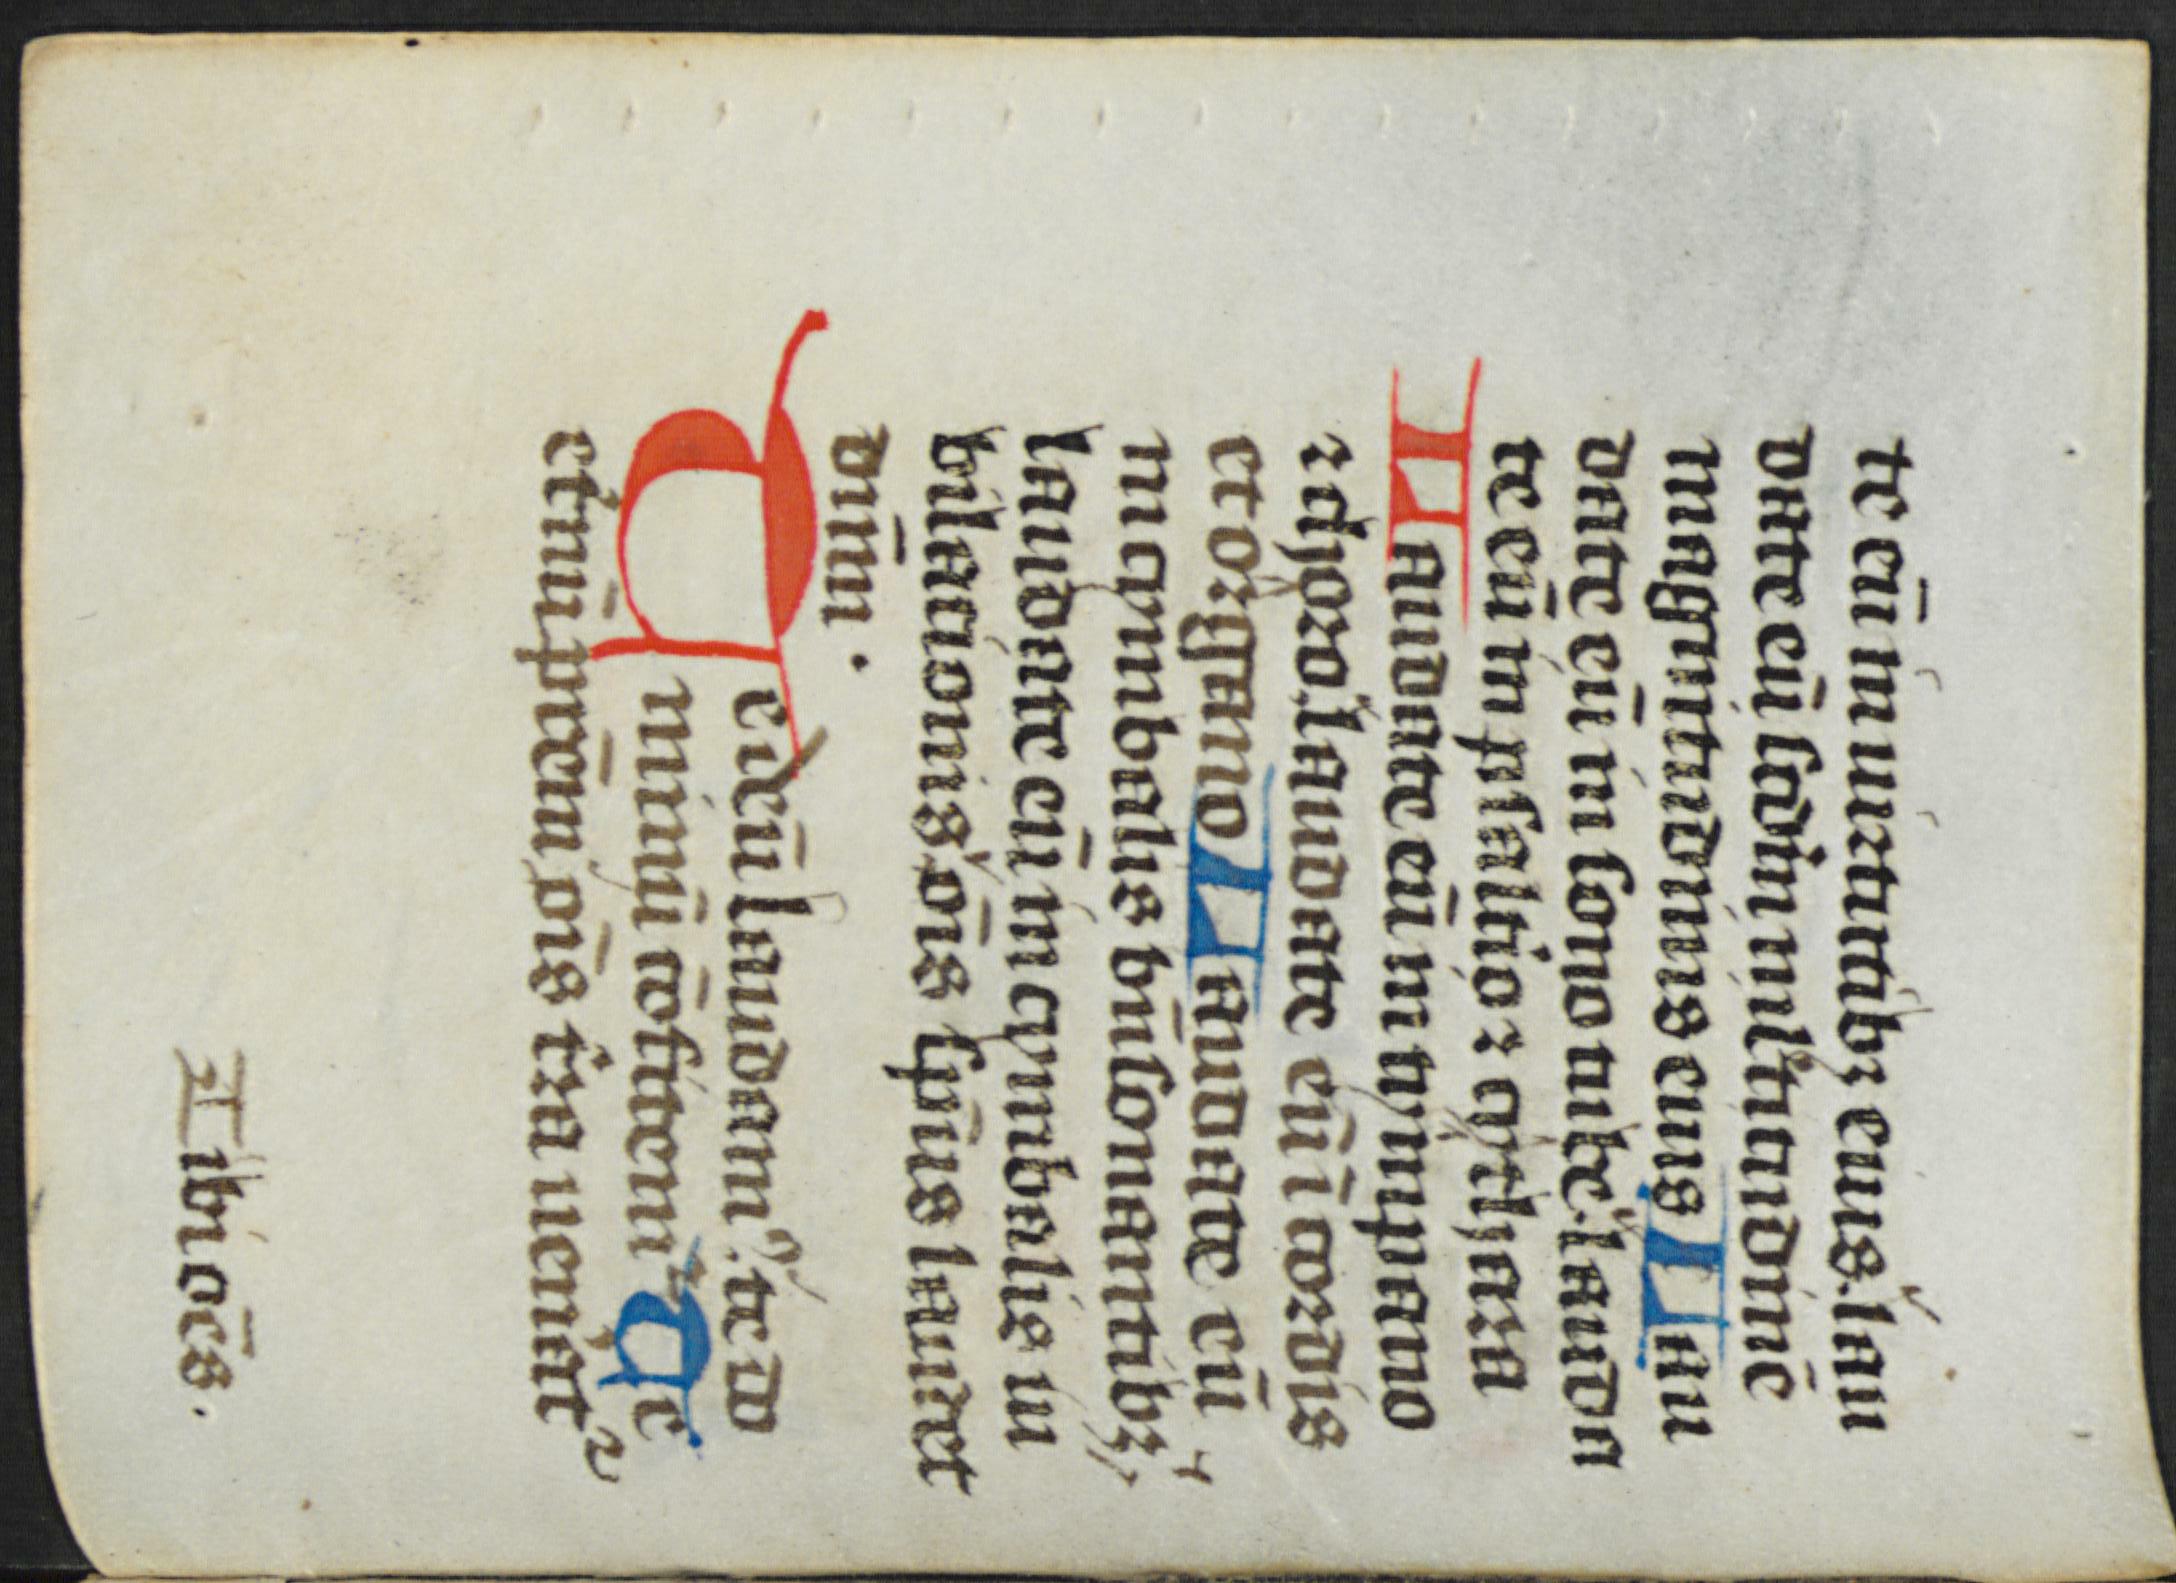 te eū in uirtutibꝫ eius.lau
date eū scdm̄ multitudinē
magnitudinis eius Lau
date eū in sono tube.lauda
te eū in psaltio ⁊ cythara
Laudate eū in tympano
⁊ choro.laudate eū ī cordis
et organo Laudate eū
in cymbalis bn̄sonantibꝫ
laudate eū in cymbalis iu
bilacionis.oīs spūs laudet
dūm.
Te deū laudam⁹.te do
minū cōfitemur Te
eternū patrem oīs tra uenerat᷑
Tibi oēs.